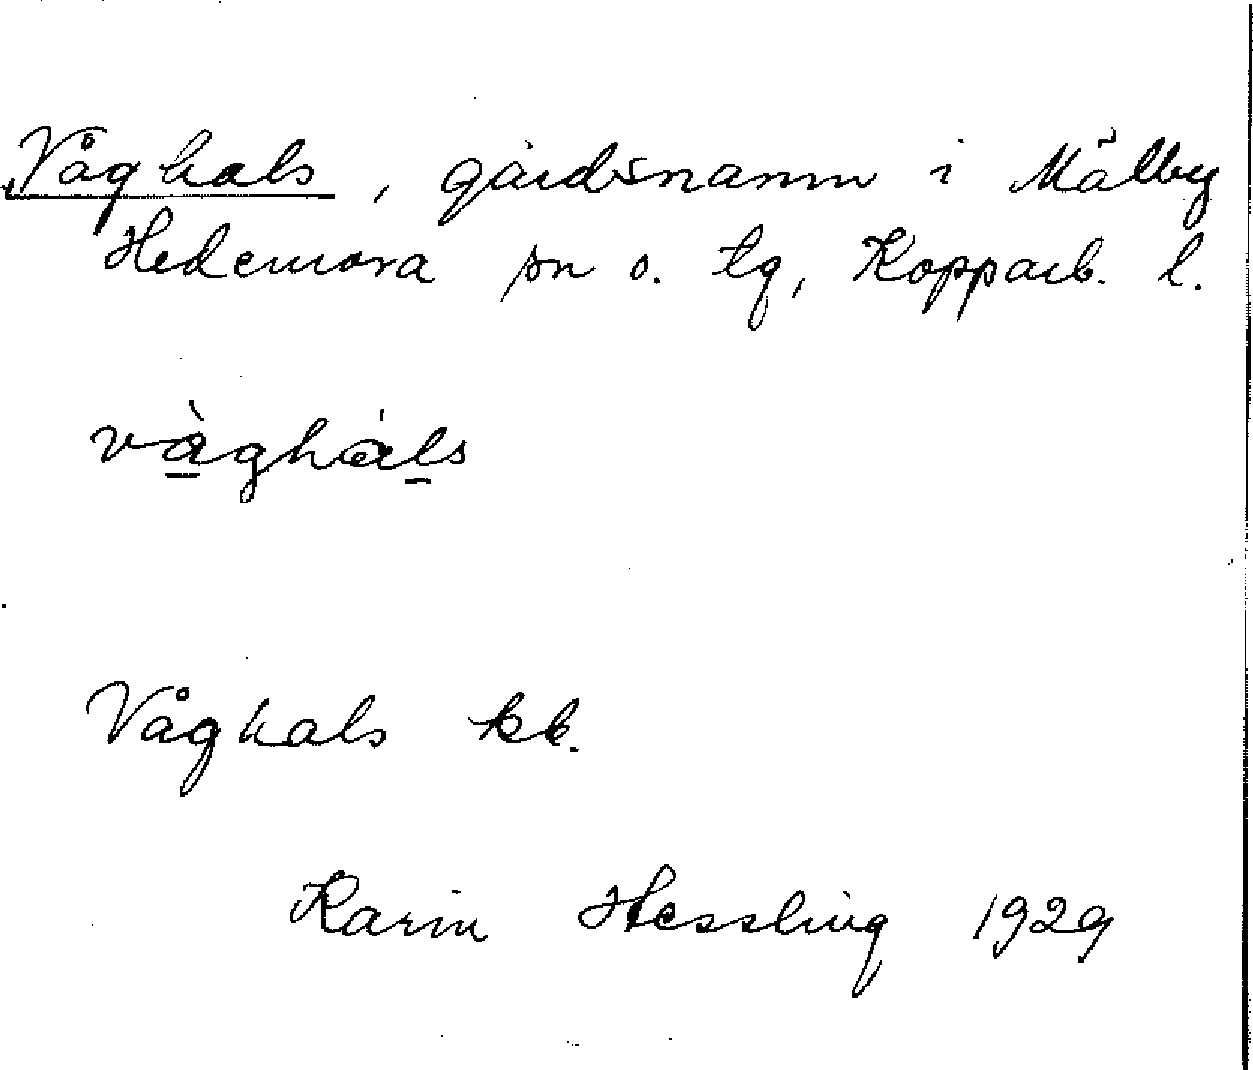 Våghals, gårdsnamn i Målby
Hedemora sn o. tg, Kopparb. l.
vàgháls
Våghals kb.
Karin Hessling 1929